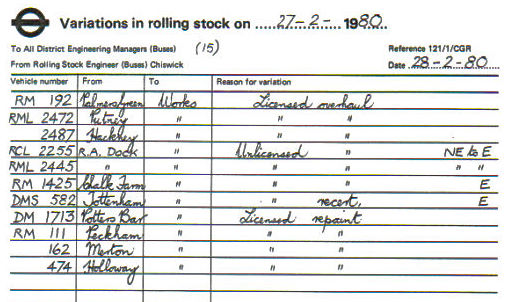 Variations in rolling stock on 27-2- 1980.
To All District Engineering Managers (Buses) (15) Reference 121/1/CGR
From Rolling Stock Engineer (Buses) Chiswick Date 28-2-80
Vehicle number From To Reason for variation
RM 192 Palmers Green Works Licensed overhaul
RML 2472 Putney " " "
2487 Hackney " " "
RCL 2255 R.A. Dock " Unlicensed " NE to E
RML 2445 " " " " " "
RM 1425 Chalk Farm " " " E
DMS 582 Tottenham " " recert, E
DM 1713 Potters Bar " Licensed repaint
RM 111 Peckham " " "
162 Merton " " "
474 Holloway " " "